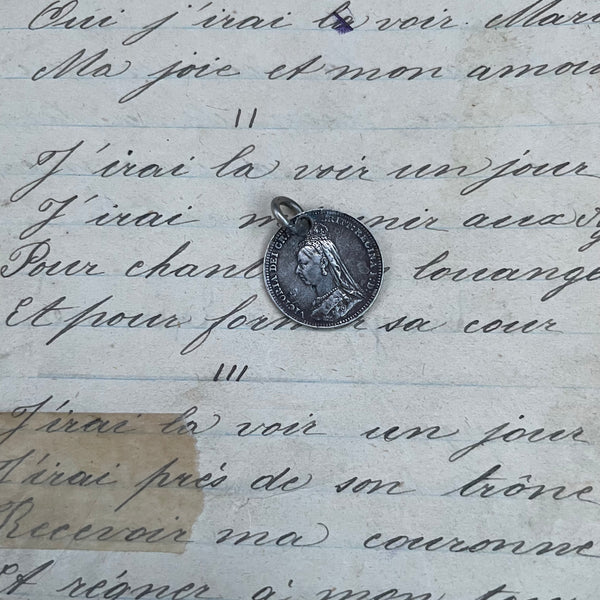 Oui j'irai la voir Mari
Ma joie et mon amou
II
J'irai la voir un jour
J'irai m'unir aux
Pour chan louange
Et pour for sa cour
VICTORIA DEI GR BRITT:REGINA F:D:
III
J'irai la voir un jour
J'irai près de son trône
Recevoir ma couronne
Et régner à mon tou